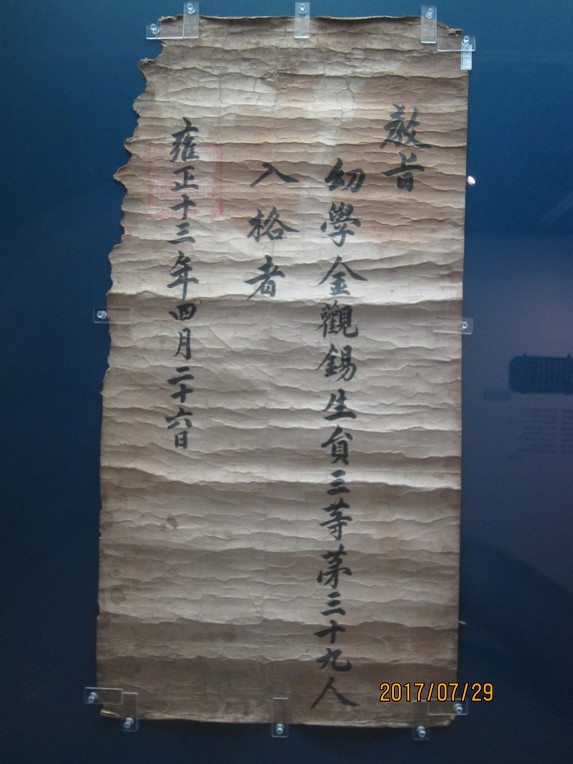 敎旨
幼學金觀錫生員三等苐三十九人
入格者
雍正十三年四月二十六日
2017/07/29